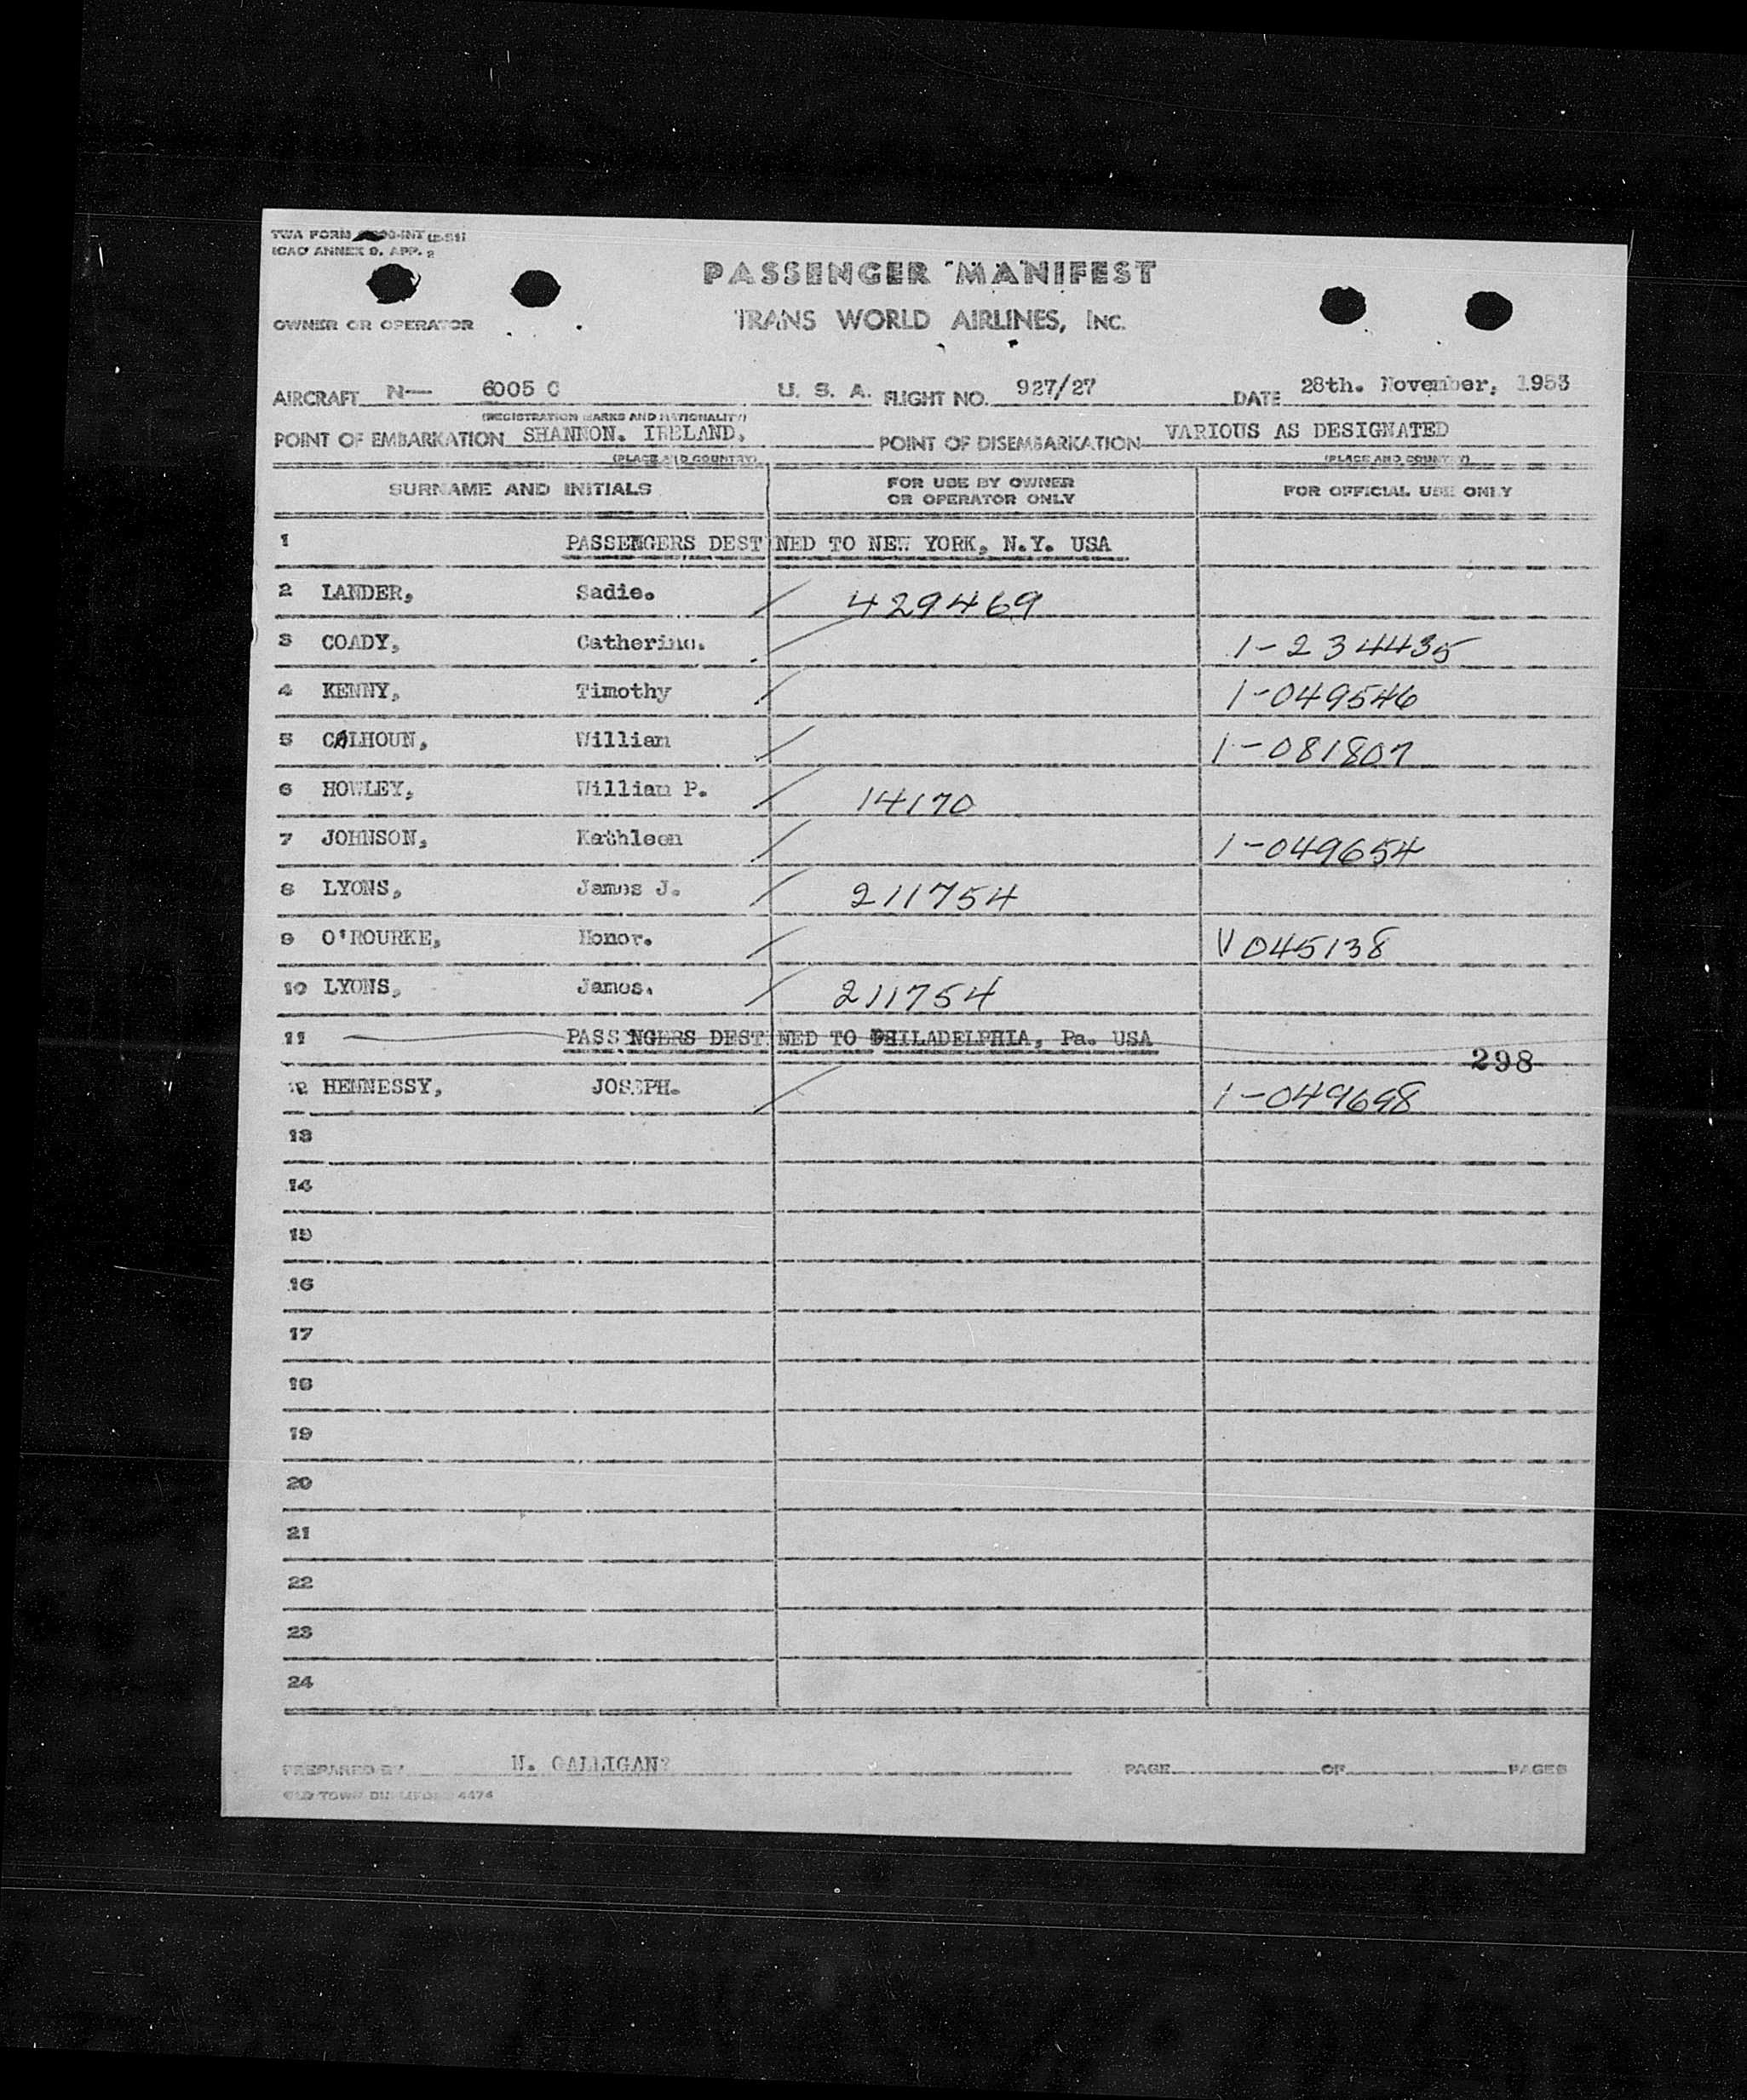 TWA FORM INT (2-51)
ICAO ANNEX 9, APP. 2
PASSENGER MANIFEST
OWNER OR OPERATOR TRANS WORLD AIRLINES, INC.
AIRCRAFT N— 6005 C U. S. A. FLIGHT NO. 927/27 DATE 28th. November, 1953
(REGISTRATION MARKS AND NATIONALITY)
POINT OF EMBARKATION SHANNON. IRELAND. POINT OF DISEMBARKATION VARIOUS AS DESIGNATED
(PLACE AND COUNTRY) (PLACE AND COUNTRY)
SURNAME AND INITIALS FOR USE BY OWNER OR OPERATOR ONLY FOR OFFICIAL USE ONLY
1 PASSENGERS DESTINED TO NEW YORK, N.Y. USA
2 LANDER, Sadie. 429469
3 COADY, Catherine. 1-234435
4 KENNY, Timothy 1-049546
5 CALHOUN, William 1-081807
6 HOWLEY, William P. 14170
7 JOHNSON, Kathleen 1-049654
8 LYONS, James J. 211754
9 O'ROURKE, Honor. V045138
10 LYONS, James. 211754
11 PASSENGERS DESTINED TO PHILADELPHIA, Pa. USA
298
12 HENNESSY, JOSEPH. 1-049698
13
14
15
16
17
18
19
20
21
22
23
24
PREPARED BY N. GALLIGAN? PAGE OF PAGES
OLD TOWN 4474